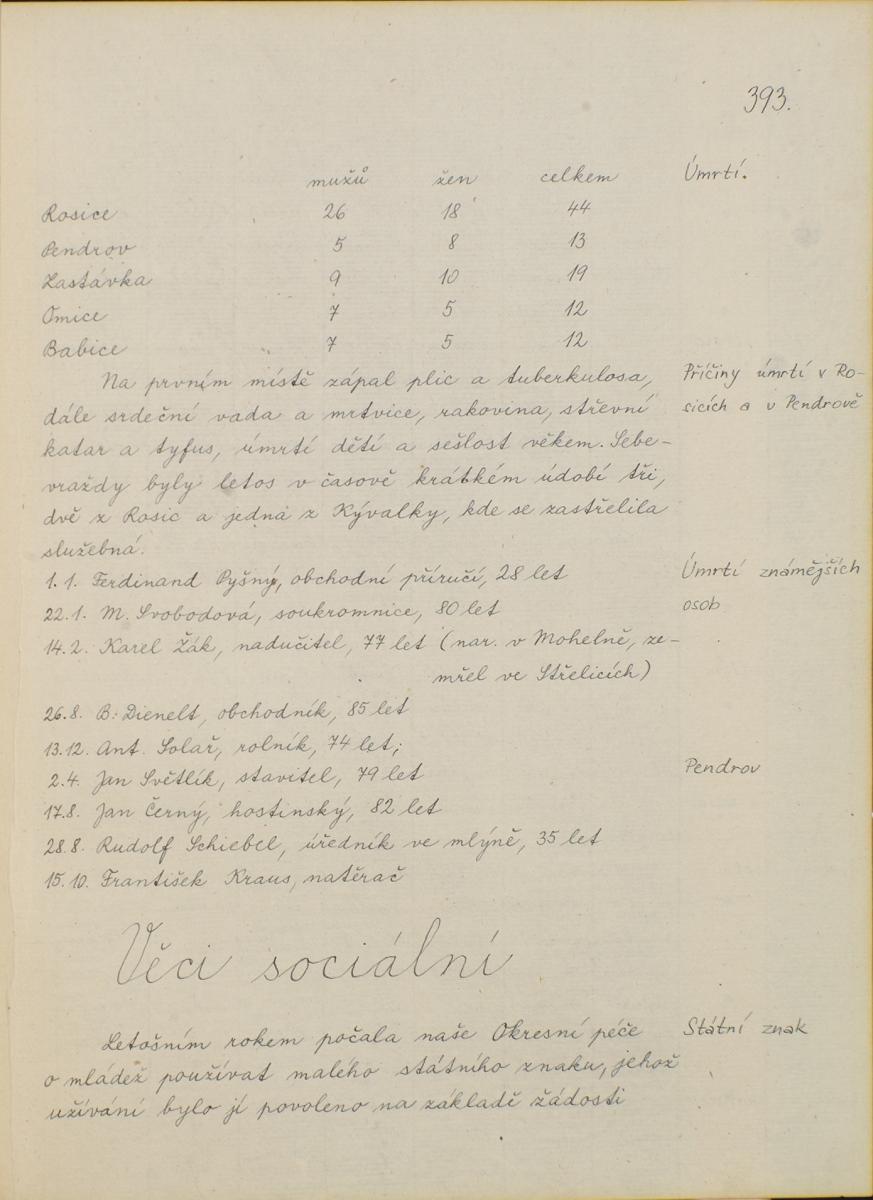 393.
mužů žen celkem Úmrtí.
Rosice 26 18 44
Pendrov 5 8 13
Zastávka 9 10 19
Omice 7 5 12
Babice 7 5 12
Na prvním místě zápal plic a tuberkulosa, Příčiny úmrtí v Ro-
dále srdeční vada a mrtvice, rakovina, střevní sicích a v Pendrově
katar a tyfus, úmrtí dětí a sešlost věkem. Sebe-
vraždy byly letos v časově krátkém údobí tři,
dvě z Rosic a jedna z Kývalky, kde se zastřelila
služebná.
1.1. Ferdinand Pyšný, obchodní příručí, 28 let Úmrtí známějších
22.1. M. Svobodová, soukromnice, 80 let osob
14.2. Karel Žák, nadučitel, 77 let (nar. v Mohelně, ze-
mřel ve Střelicích)
26.8. B. Dienelt, obchodník, 85 let
13.12. Ant. Solař, rolník, 74 let;
2.4. Jan Světlík, stavitel, 79 let Pendrov
17.8. Jan Černý, hostinský, 82 let
28.8. Rudolf Schiebel, úředník ve mlýně, 35 let
15.10. František Kraus, natěrač
Věci sociální
Letošním rokem počala naše Okresní péče Státní znak
o mládež používat malého státního znaku, jehož
užívání bylo jí povoleno na základě žádosti